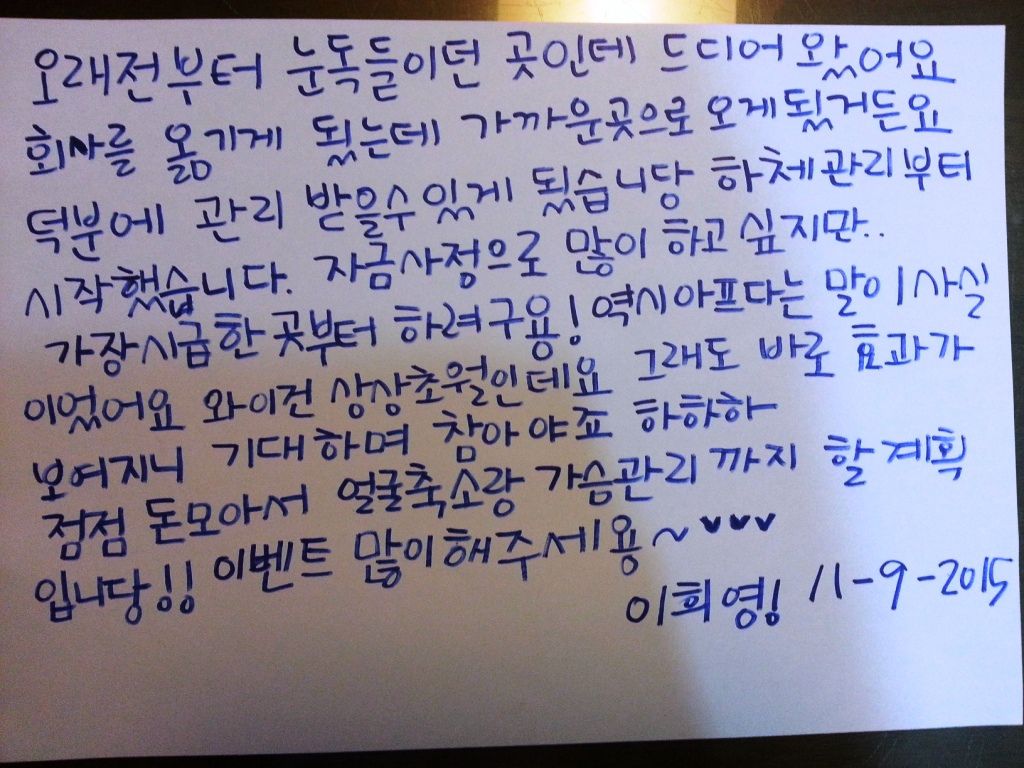 오래전부터 눈독들이던 곳인데 드디어 왔어요
회사를 옮기게 됬는데 가까운곳으로 오게됬거든요
덕분에 관리 받을수있게 됬습니당 하체관리부터
시작했습니다. 자금사정으로 많이 하고싶지만..
가장시급한곳부터 하려구용! 역시아프다는 말이 사실
이었어요 와이건 상상초월인데요 그래도 바로 효과가
보여지니 기대하며 참아야죠 하하하
점점 돈모아서 얼굴축소랑 가슴관리까지 할계획
입니당!! 이벤트 많이해주세용~♥♥♥
이희영! 11-9-2015